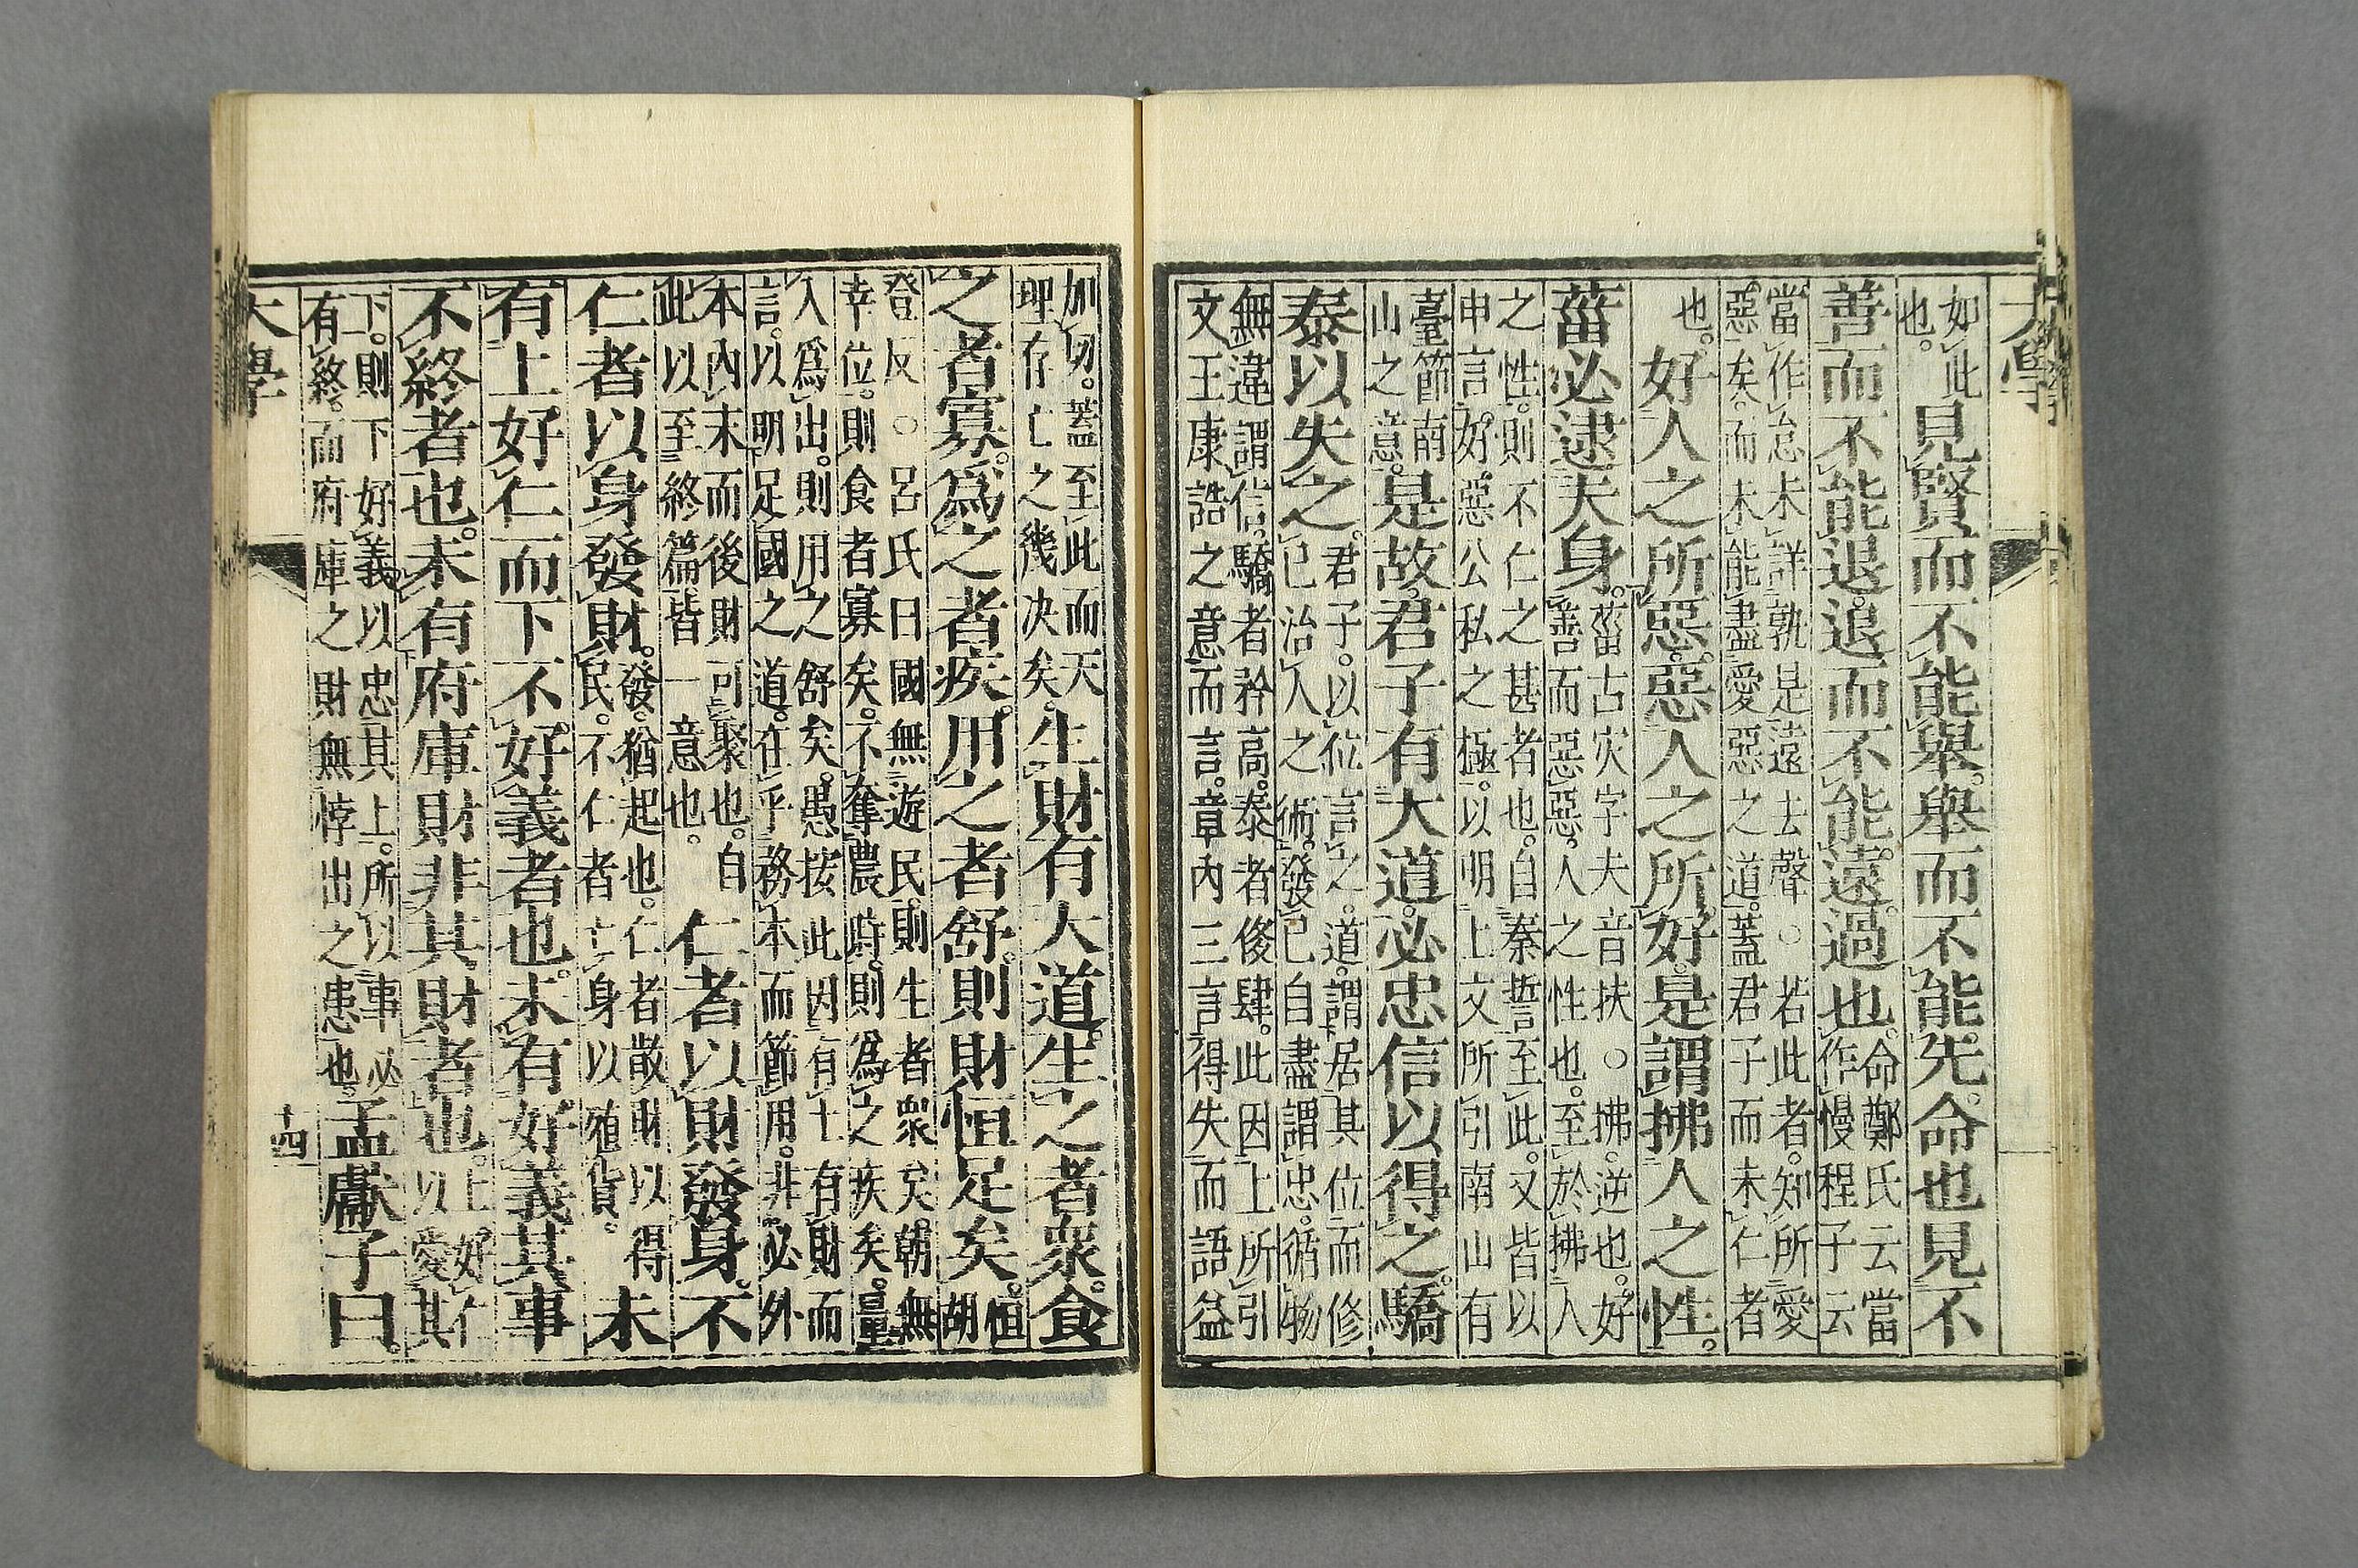 大學
如此也。見賢而不能舉。舉而不能先。命也見不
善而不能退。退而不能遠。過也。命鄭氏云當作慢程子云
當作怠未詳孰是遠去聲○若此者。知所愛
惡矣。而未能盡愛惡之道。蓋君子而未仁者
也。好人之所惡。惡人之所好。是謂拂人之性。
菑必逮夫身。菑古灾字夫音扶○拂。逆也。好善而惡惡。人之性也。至於拂人
之性。則不仁之甚者也。自秦誓至此。又皆以
申言。好。惡公私之極。以明上文所引南山有
臺節南山之意。是故君子有大道。必忠信以得之。驕
泰以失之。君子。以位言之。道。謂居其位而修己治人之術。發己自盡謂忠。循物
無違謂信。驕者矜高。泰者侈肆。此因上所引
文王康誥之意而言。章內三言得失而語益
加切。蓋至此而天理存亡之幾决矣。生財有大道。生之者衆。食
之者寡。爲之者疾。用之者舒。則財恒足矣。恒胡
登反○呂氏曰國無遊民。則生者衆矣。朝無
幸位。則食者寡矣。不奪農時。則爲之疾矣。量
入爲出。則用之舒矣。愚按此因有土有財而
言。以明足國之道。在乎務本而節用。非必外
本內末而後財可聚也。自此以至終篇。皆一意也。仁者以財發身。不
仁者以身發財。發。猶起也。仁者散財以得民。不仁者亡身以殖貨。未
有上好仁而下不好義者也。未有好義其事
不終者也。未有府庫財非其財者也。上好仁以愛其
下。則下好義以忠其上。所以事必有終。而府庫之財無悖出之患也。孟獻子曰。
大學 十四